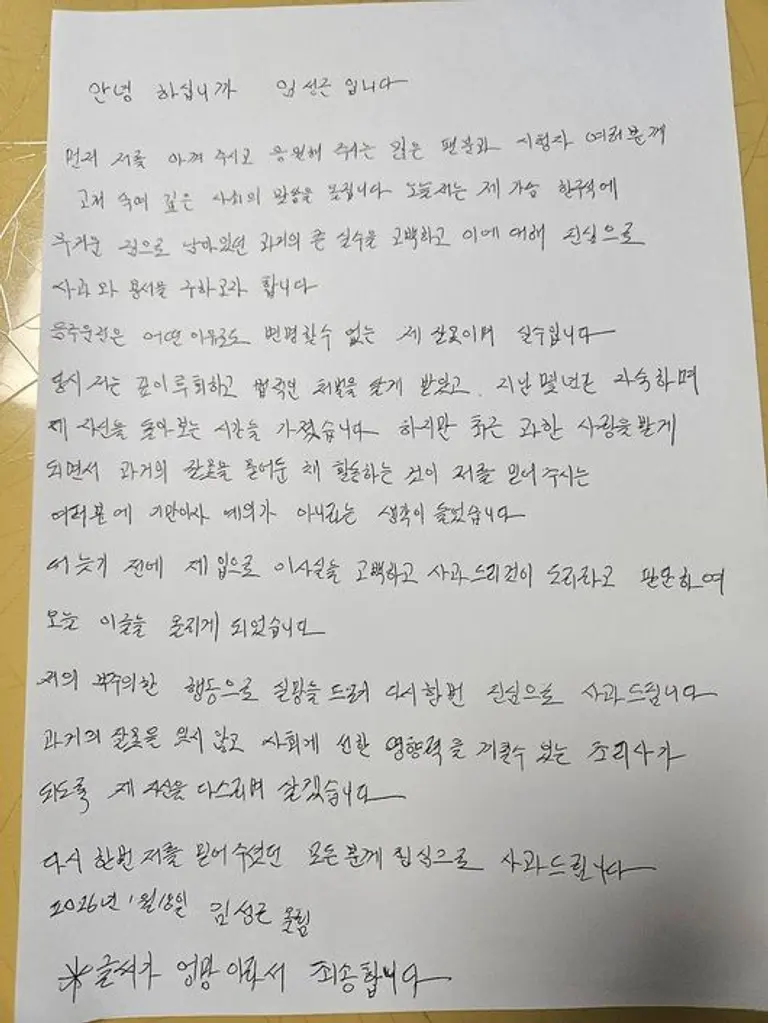 안녕 하십니까 임성근 입니다
먼저 저를 아껴 주시고 응원해 주시는 많은 팬분과 시청자 여러분께
고개 숙여 깊은 사죄의 말씀을 올립니다 오늘 저는 제 가슴 한구석에
무거운 짐으로 남아있던 과거의 큰 실수를 고백하고 이에 대해 진심으로
사과와 용서를 구하고자 합니다
음주운전은 어떤 이유로도 변명할수 없는 제 잘못이며 실수입니다
당시 저는 깊이 후회하고 법적인 처벌을 달게 받았고, 지난 몇년간 자숙하며
제 자신을 돌아보는 시간을 가졌습니다 하지만 최근 과한 사랑을 받게
되면서 과거의 잘못을 묻어둔 채 활동하는 것이 저를 믿어 주시는
여러분에 기만이자 예의가 아니라는 생각이 들었습니다
더 늦기 전에 제 입으로 이사실을 고백하고 사과드리것이 도리라고 판단하여
오늘 이글을 올리게 되었습니다
저의 부주의한 행동으로 실망을 드려 다시한번 진심으로 사과드립니다
과거의 잘못을 잊지 않고 사회에 선한 영향력을 끼칠수 있는 조리사가
되도록 제 자신을 다스리며 살겠습니다
다시 한번 저를 믿어 주셨던 모든분께 진심으로 사과드립니다
2026년 1월 18일 임성근 올림
※글씨가 엉망 이라서 죄송합니다